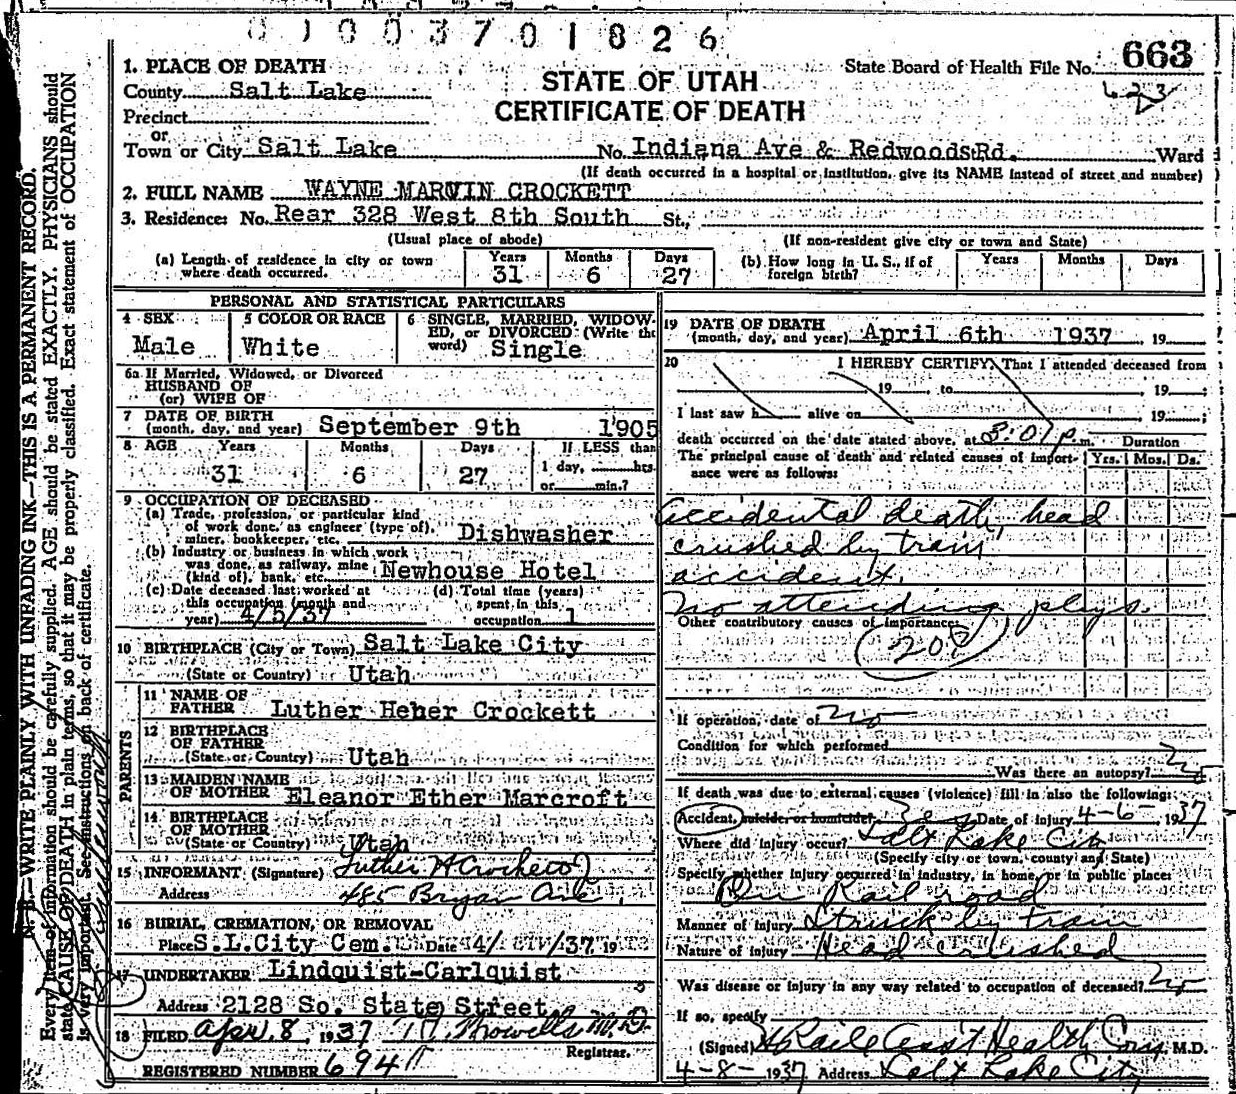 01003701826
State Board of Health File No. 663
1. PLACE OF DEATH
STATE OF UTAH
County Salt Lake
CERTIFICATE OF DEATH
Precinct
or
Town or City Salt Lake No. Indiana Ave & Redwoods Rd. Ward
(If death occurred in a hospital or institution, give its NAME instead of street and number)
2. FULL NAME WAYNE MARVIN CROCKETT
3. Residence: No. Rear 328 West 8th South St.,
(Usual place of abode) (If non-resident give city or town and State)
(a) Length of residence in city or town where death occurred. Years 31 Months 6 Days 27
(b) How long in U. S., if of foreign birth? Years Months Days
PERSONAL AND STATISTICAL PARTICULARS
4 SEX Male
5 COLOR OR RACE White
6 SINGLE, MARRIED, WIDOWED, or DIVORCED (Write the word) Single
6a If Married, Widowed, or Divorced
HUSBAND OF
(or) WIFE OF
7 DATE OF BIRTH
(month, day, and year) September 9th 1905
8 AGE Years 31 Months 6 Days 27
If LESS than
1 day, hrs.
or min.?
9 OCCUPATION OF DECEASED
(a) Trade, profession, or particular kind
of work done, as engineer (type of),
miner, bookkeeper, etc. Dishwasher
(b) Industry or business in which work
was done, as railway, mine
(kind of), bank, etc. Newhouse Hotel
(c) Date deceased last worked at
this occupation (month and
year) 4/5/37
(d) Total time (years)
spent in this
occupation 1
10 BIRTHPLACE (City or Town) Salt Lake City
(State or Country) Utah
PARENTS
11 NAME OF
FATHER Luther Heber Crockett
12 BIRTHPLACE
OF FATHER
(State or Country) Utah
13 MAIDEN NAME
OF MOTHER Eleanor Ether Marcroft
14 BIRTHPLACE
OF MOTHER
(State or Country) Utah
15 INFORMANT (Signature) Luther H Crockett
Address 485 Bryan Ave.
16 BURIAL, CREMATION, OR REMOVAL
Place S.L.City Cem. Date 4/ /37 19
17 UNDERTAKER Lindquist-Carlquist
Address 2128 So. State Street
18 FILED Apr. 8, 1937 M.D.
Registrar.
REGISTERED NUMBER 694
19 DATE OF DEATH
(month, day, and year) April 6th 1937, 19
20 I HEREBY CERTIFY, That I attended deceased from
19 , to , 19 ;
I last saw h alive on , 19 ;
death occurred on the date stated above, at 3:01 p.m. Duration
The principal cause of death and related causes of importance were as follows: Yrs. Mos. Ds.
Accidental death, head
crushed by train
accident.
No attending phys.
Other contributory causes of importance:
If operation, date of no
Condition for which performed
Was there an autopsy? no
If death was due to external causes (violence) fill in also the following:
Accident, suicide or homicide? Yes Date of injury 4-6-, 1937
Where did injury occur? Salt Lake City
(Specify city or town, county and State)
Specify whether injury occurred in industry, in home, or in public place:
On Railroad
Manner of injury Struck by train
Nature of injury Head crushed
Was disease or injury in any way related to occupation of deceased? no
If so, specify
(Signed) Asst Health Com, M.D.
4-8-1937 Address Salt Lake City
N. B.—WRITE PLAINLY WITH UNFADING INK—THIS IS A PERMANENT RECORD.
Every item of information should be carefully supplied. AGE should be stated EXACTLY. PHYSICIANS should
state CAUSE OF DEATH in plain terms, so that it may be properly classified. Exact statement of OCCUPATION
is very important. See instructions on back of certificate.